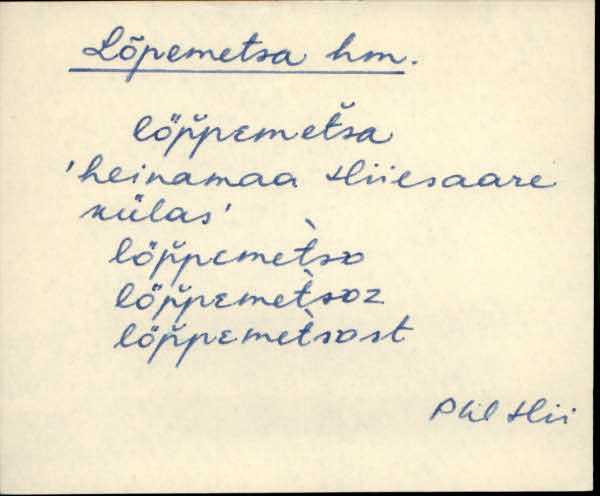 Lõpemetsa hm.
lö̆ppεmet̆sa
'heinamaa Hiiesaare
külas'
lö̆ppεmet̀sɒ
lö̆ppεmet̀sɒz
lö̆ppεmet̀sɒst
Phl Hii